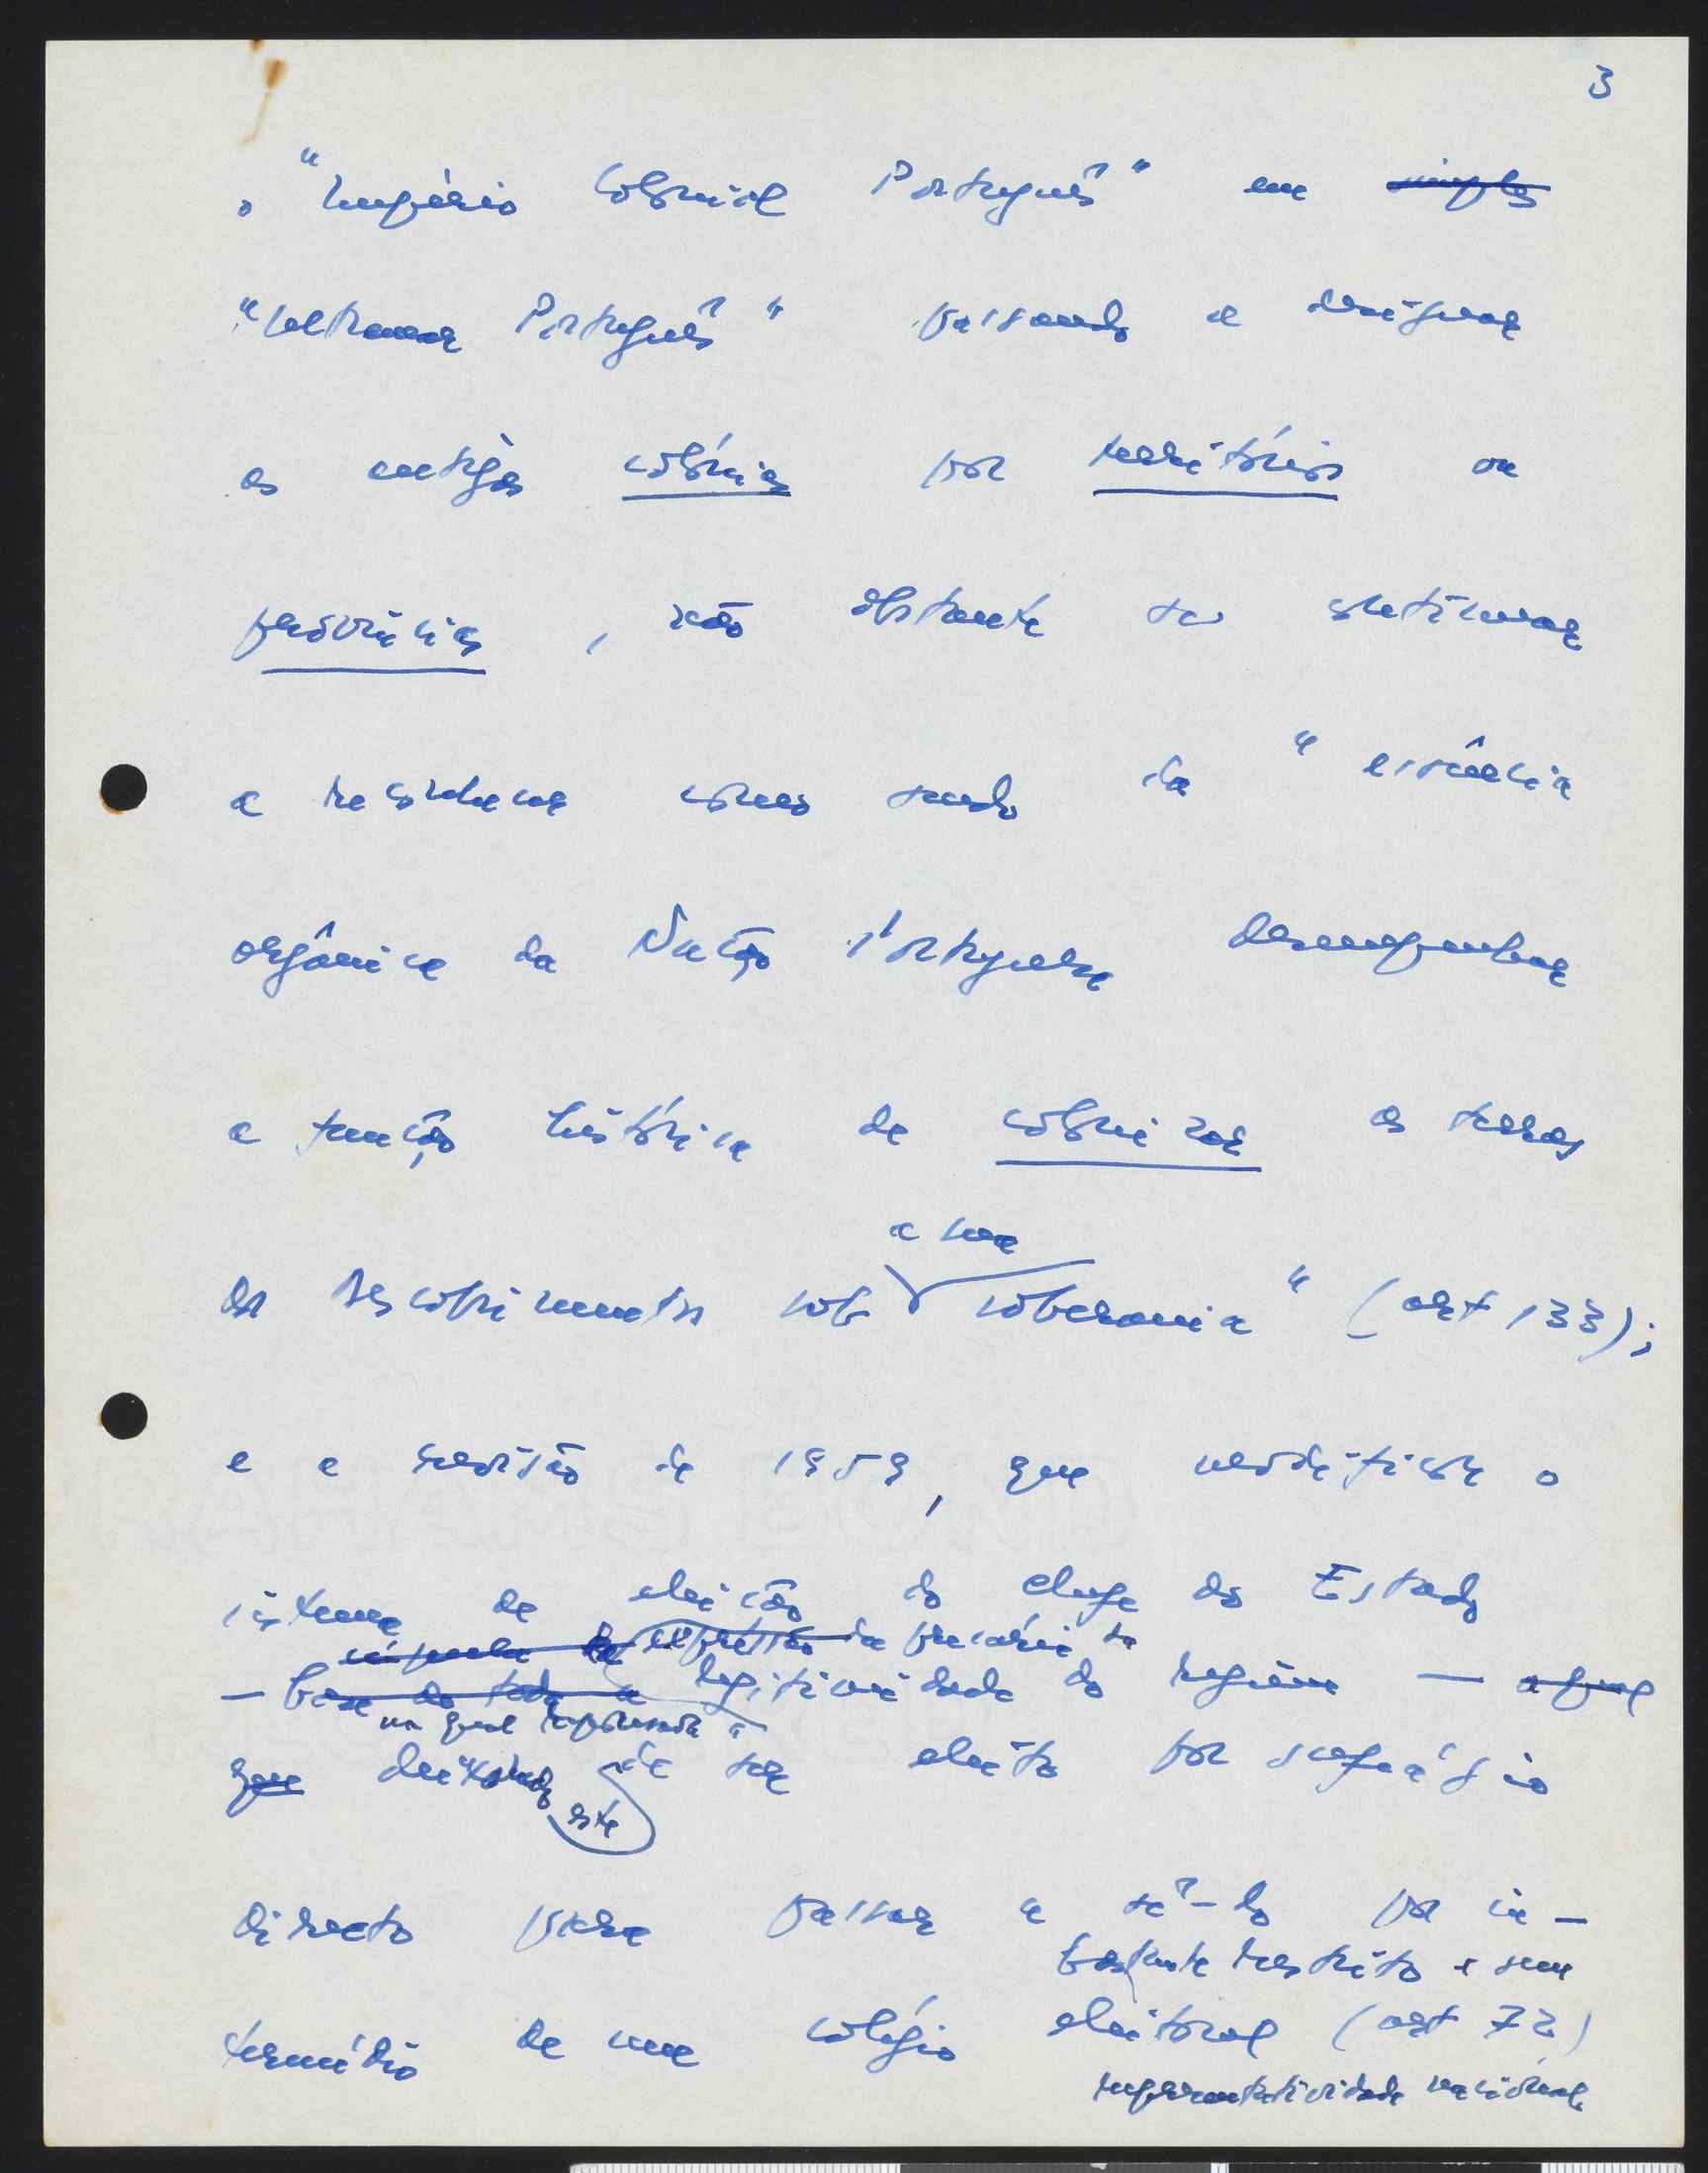 3
o "Império Colonial Português" em simples
"Ultramar Português" passando a designar
as antigas colónias por territórios ou
províncias, não obstante se continuar
a reconhecer como sendo da "essência
orgânica da Nação Portuguesa desempenhar
a função histórica de colonizar as terras
a sua
dos Descobrimentos sob soberania" (art 133);
e a revisão de 1959, que modificou o
sistema de eleição do chefe do Estado
expressão da precária
— base de toda a legitimidade do regime — a qual
na qual
que deixando este de ser eleito por sufrágio
directo para passar a sê-lo por in-
bastante restrito e sem
termédio de um colégio eleitoral (art 72)
representatividade nacional